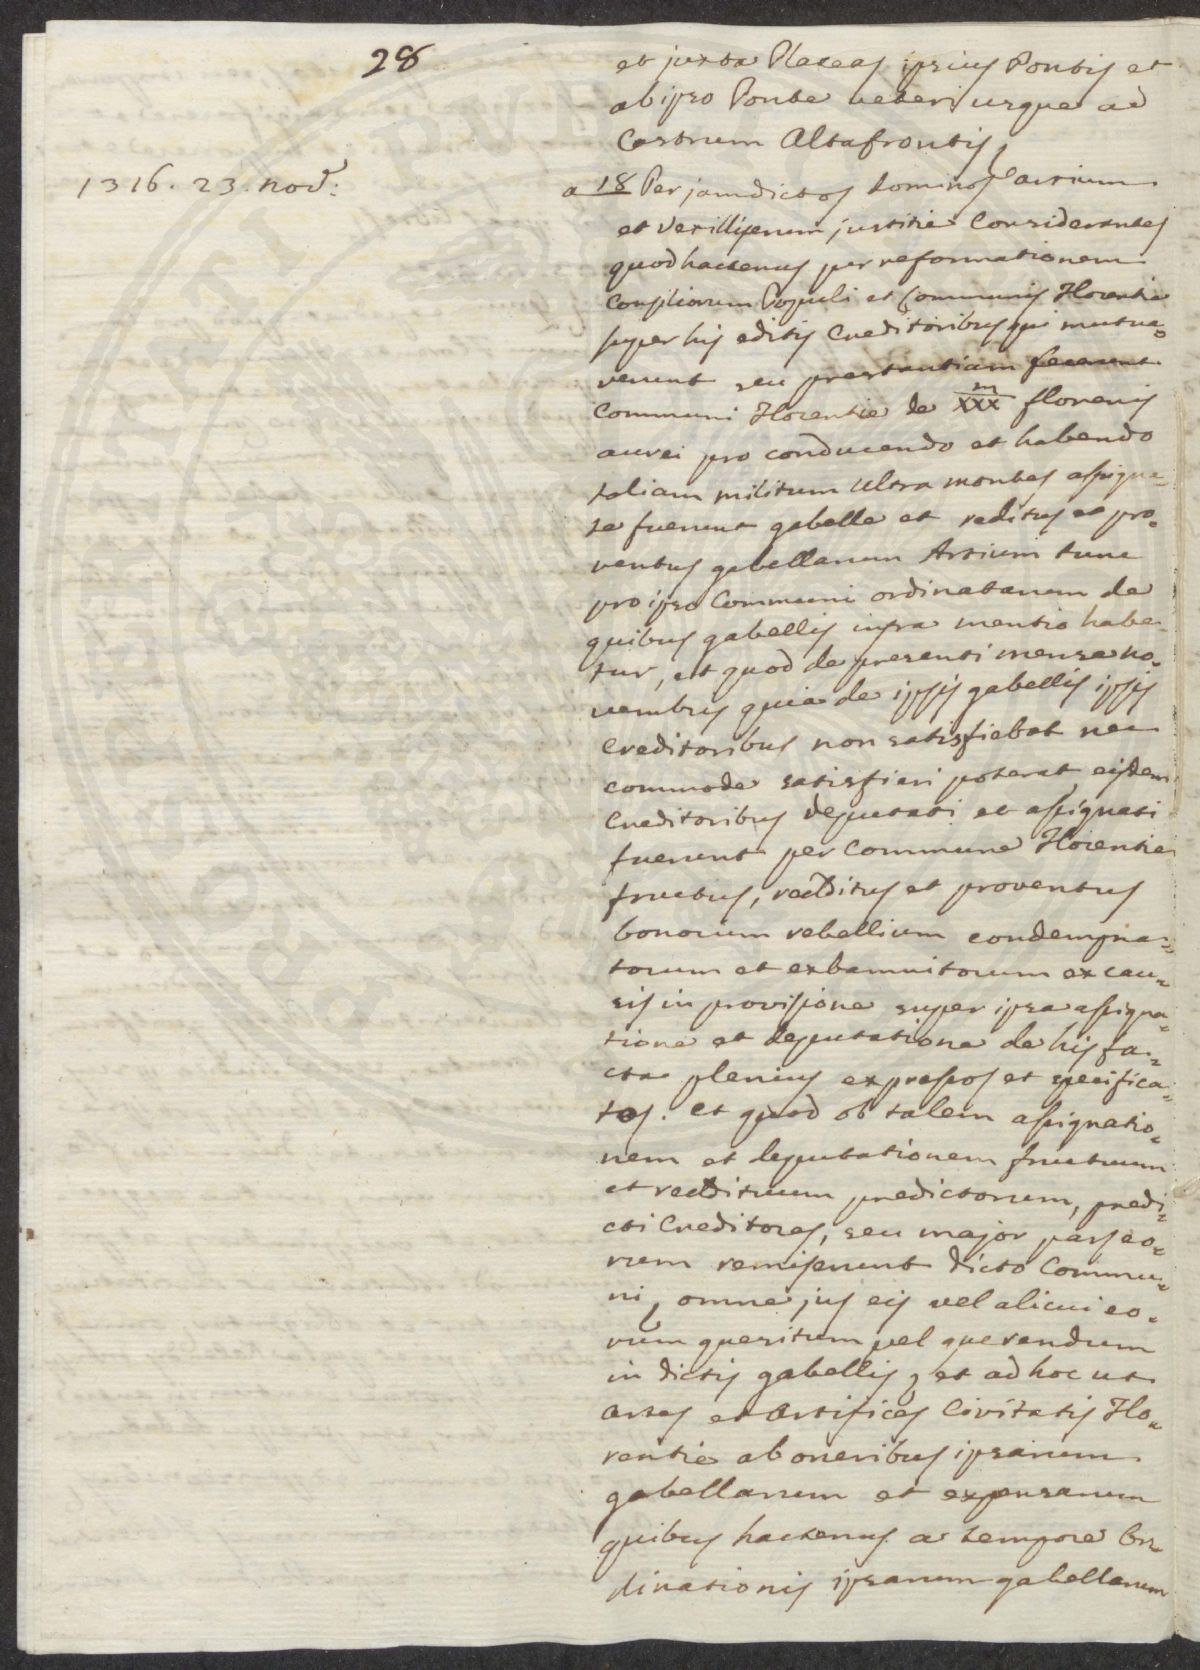 28
et juxta Plateas ipsius Pontis et
ab ipso Ponte veteri usque ad
Castrum Altafrontis,
1316. 23. nov:
a 18 Per jamdictos dominos artium
et vexilliferum justitie Considerantes
quod hactenus per reformationem
Consiliorum Populi et Communis Florentie
super his editis Creditoribus qui mutua=
verunt seu prestantiam fecerunt
Communi Florentie de XXX m florenis
aurei pro conducendo et habendo
taliam militum Ultra montes assigna=
te fuerunt gabelle et reditus et pro=
ventus gabellarum Artium tunc
pro ipso Communi ordinatarum de
quibus gabellis infra mentio habe=
tur, et quod de presenti mense no=
vembris quia de ipsis gabellis ipsis
Creditoribus non satisfiebat nec
commode satisfieri poterat eisdem
Creditoribus deputati et assignati
fuerunt per Commune Florentie
fructus, redditus et proventus
bonorum rebellium condempna=
torum et exbannitorum ex cau=
sis in provisione super ipsa assigna=
tione et deputatione de his fa=
cta plenius expressos et specifica=
tos. et quod ob talem assignatio=
nem et deputationem fructuum
et reddituum predictorum, predi=
cti Creditores, seu major pars eo=
rum remiserunt dicto Commu=
ni, omne jus eis vel alicui eo=
rum quesitum vel querendum
in dictis gabellis, et ad hoc ut
Artes et Artifices Civitatis Flo=
rentie ab oneribus ipsarum
gabellarum et expensarum
quibus hactenus a tempore Or=
dinationis ipsarum gabellarum